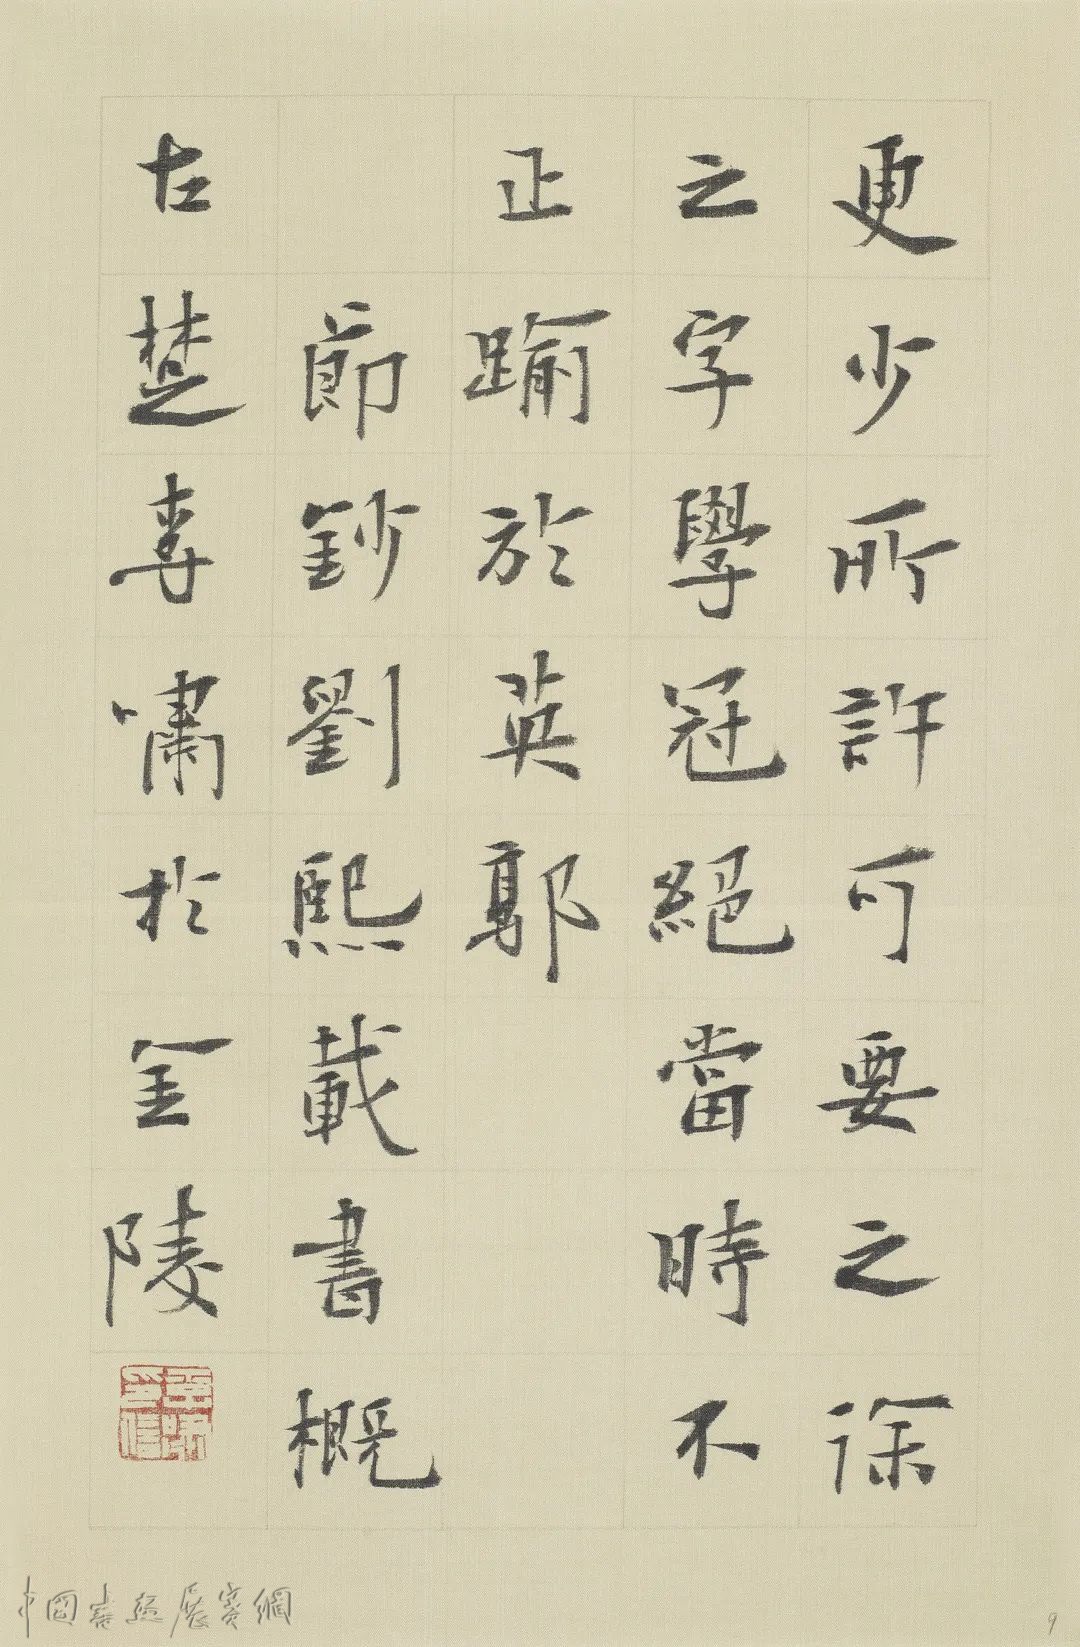 更少所許可要之徐
之字學冠絕當時不
正踰於英郭
節鈔劉熙載書概
古楚李嘯於金陵
中國書法展賽網
9